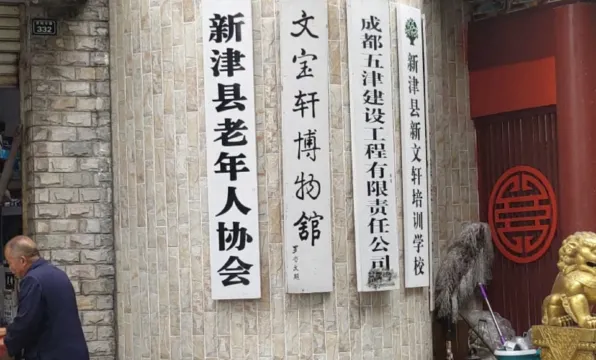 332
新津县老年人协会
文宝轩博物舘
成都五津建设工程有限责任公司
新津县新文轩培训学校